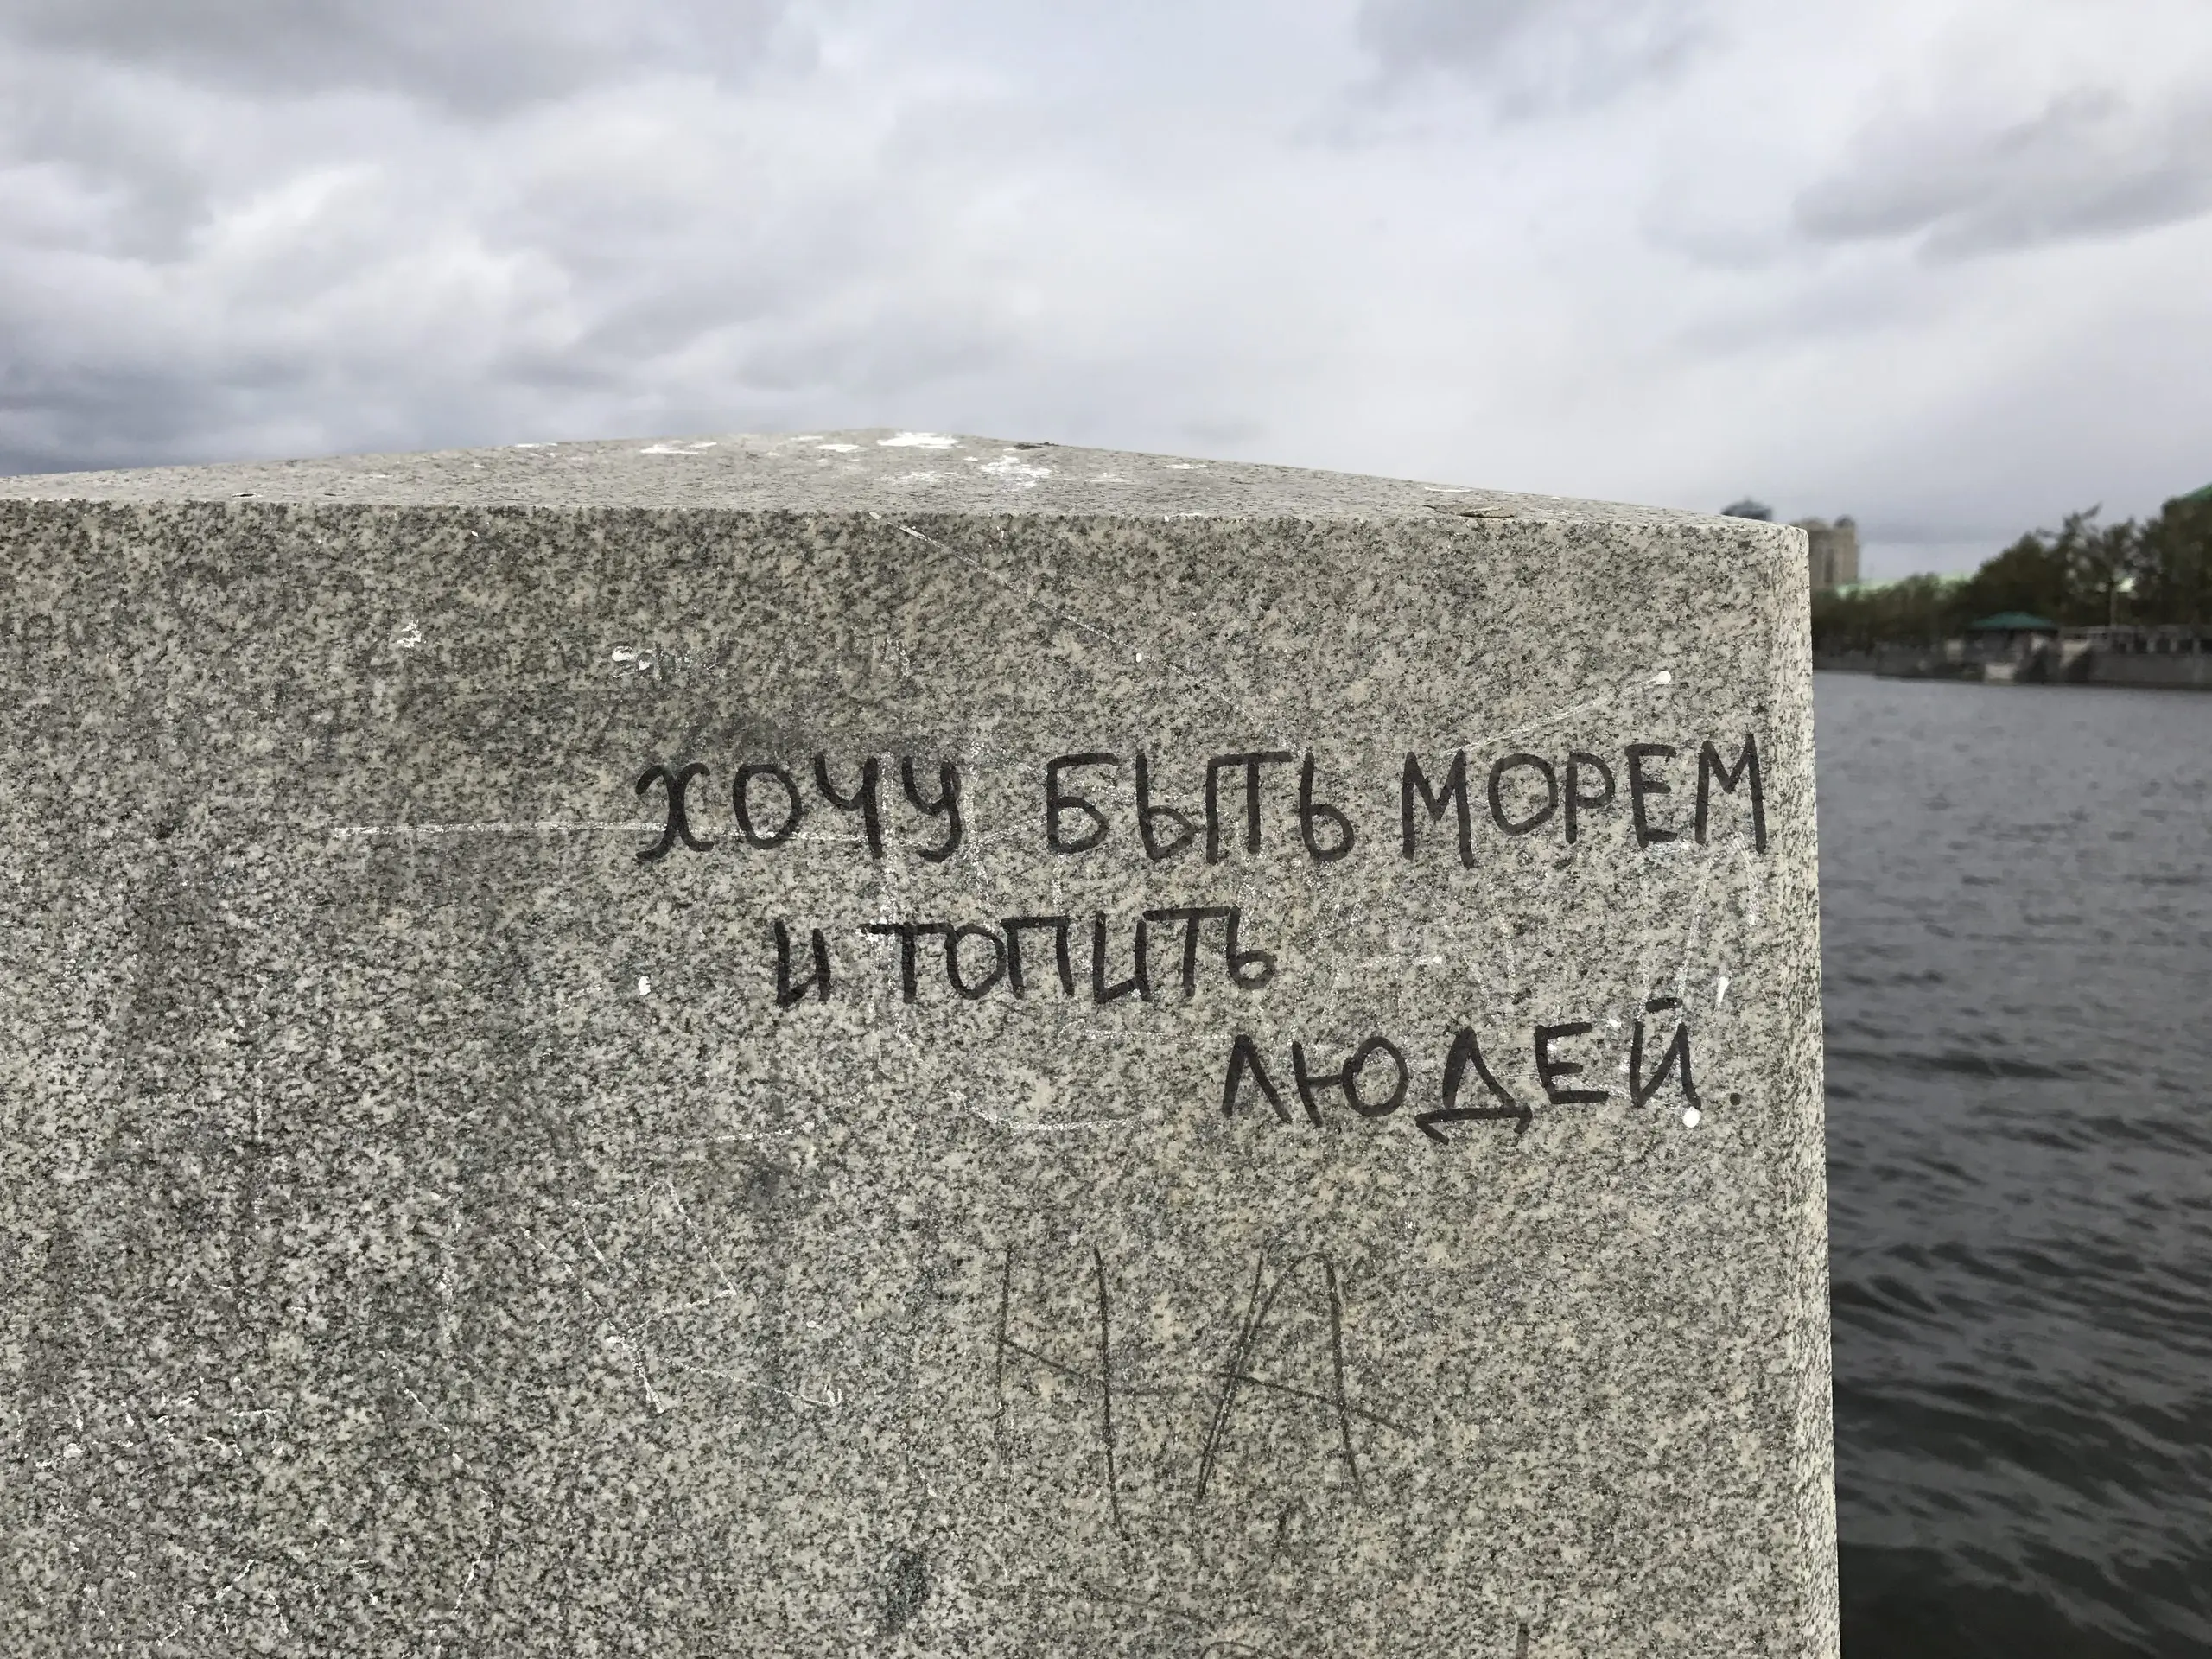 ХОЧУ БЫТЬ МОРЕМ
И ТОПИТЬ
ЛЮДЕЙ.
НА